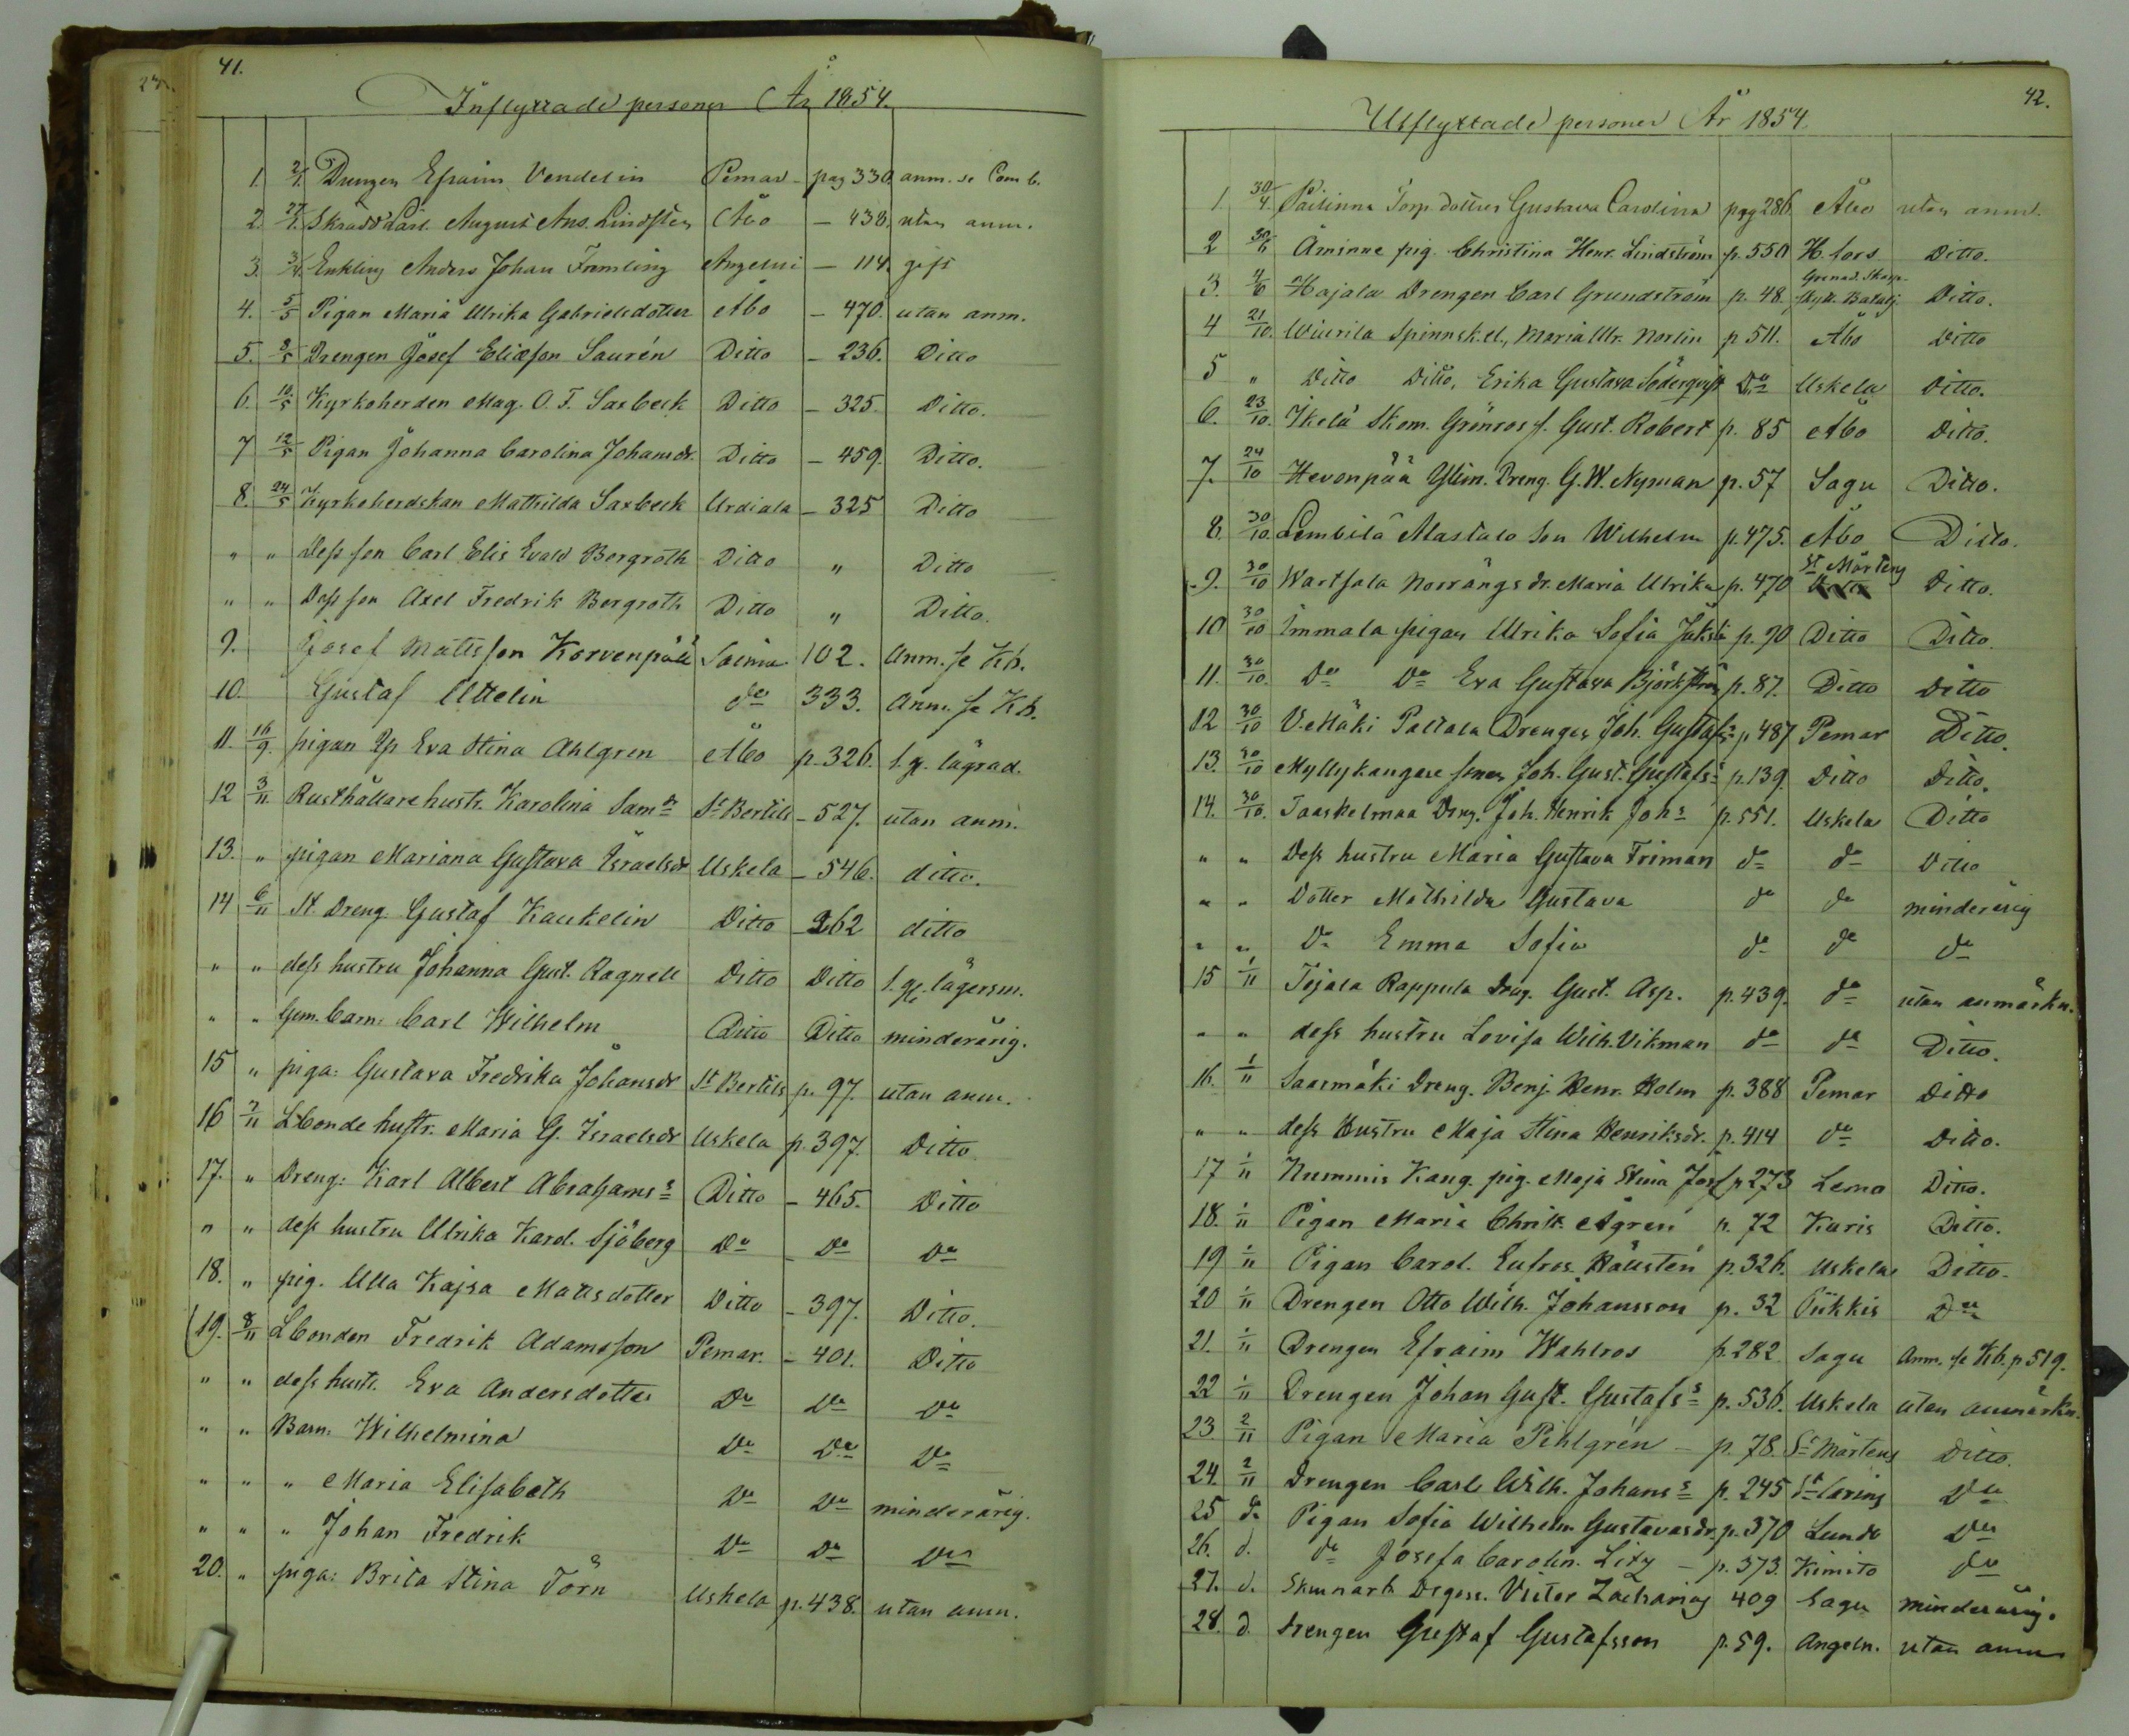 41.
Inflyttade personer År 1854.
1. 2/1. Drengen Efraim Vendelin Pemar - pag 330 anm. se Com b.
2. 27/1. Skrädd Lärl. August Ans. Lindsten Åbo - 438. utan anm.
3. 3/4. Enkling Anders Johan Framling Angelni - 114. gift
4. 5/5 Pigan Maria Ulrika Gabrielsdotter Åbo - 470. utan anm.
5. 8/5 Drengen Josef Eliæson Saurén Ditto - 236. Ditto
6. 10/5 Kyrkoherden Mag. O. F. Saxbeck Ditto - 325. Ditto.
7 12/5 Pigan Johanna Carolina Johansdr. Ditto - 459. Ditto.
8. 24/5 Kyrkoherdskan Mathilda Saxbeck Urdiala - 325 Ditto
" " Dess son Carl Elis Evald Bergroth Ditto " Ditto
" " Dess son Axel Fredrik Bergroth Ditto " Ditto.
9. Josef Mattsson Korvenpää Loimu 102. Anm. se Kb.
10. Gustaf Uttelin do 333. Anm. se Kb.
11. 16/9. pigan Eva Stina Ahlgren Åbo p. 326. l. g. lägrad.
12 3/11. Rusthållare hustr. Karolina Sam dr St Bertils - 527. utan anm.
13. " pigan Mariana Gustava Israelsdr Uskela - 546. ditto.
14 6/11 St. Dreng. Gustaf Kaukelin Ditto - 262 ditto
" " dess hustru Johanna Gust. Ragnell Ditto Ditto l. g. lägersm.
" " Gem. barn: Carl Wilhelm Ditto Ditto minderårig.
15 " piga: Gustava Fredrika Johansdr St Bertils p. 97. utan anm.
16 7/11 Lbonde hustr. Maria G. Israelsdr Uskela p. 397. Ditto.
17. " Dreng: Karl Albert Abrahams s Ditto - 465. Ditto
" " dess hustru Ulrika Karol. Sjöberg Do Do Do
18. " pig. Ulla Kajsa Mattsdotter Ditto - 397. Ditto.
19. 8/11 Lbonden Fredrik Adamsson Pemar. - 401. Ditto
" " dess hustr. Eva Andersdotter Do Do Do
" " Barn: Wilhelmina Do Do Do
" " " Maria Elisabeth Do Do minderårig.
" " " Johan Fredrik Do Do Do
20. " piga: Brita Stina Törn Uskela p. 438. utan anm.
42.
Utflyttade personer År 1854.
1. 30/4. Torp. dottren Gustava Carolina pag 286 Åbo utan anm.
2 Åminne pig. Christina Henr. Lindström p. 550 H. fors Ditto.
3. Hajala Drengen Carl Grundström p. 48. Grenad. Skarp- skytt. Batalj. Ditto.
4 21/10. Wiurila Spinnsk. el., Maria Ulr. Norlin p 511. Åbo Ditto
5 " Ditto Ditto, Erika Gustava Söderqvist Do Uskela Ditto.
6. 23/10. Ikelä Skom. Grönros s. Gust. Robert p. 85 Åbo Ditto.
7. 24/10 Hevonpää Ylim. Dreng. G. W. Nyman p. 57 Sagu Ditto.
8. 30/10. Lembilä Mastalo Son Wilhelm p. 475. Åbo Ditto.
9. 30/10 Wartsala Norrängs dr. Maria Ulrika p. 470 St Mårtens Ditto.
10 30/10 Immala pigan Ulrika Sofia p. 90 Ditto Ditto.
11. 30/10. Do Do Eva Gustava Björkström p. 87. Ditto Ditto
12 30/10 V. Mäki Paltala Drengen Joh. Gustafs: p. 487 Pemar Ditto.
13. 30/10 Myllykangare sonen Joh. Gust. Gustafs s p. 139. Ditto Ditto.
14. 30/10. Taaskelmaa Dreng. Joh. Henrik Joh s p. 551. Uskela Ditto
" " Dess hustru Maria Gustava Friman do do Ditto
" " Dotter Mathilda Gustava do do minderårig
" " Do Emma Sofia do do do
15 1/11 Tojala Rappula Dreng. Gust. Asp. p. 439. do utan anmärkn.
" " dess hustru Lovisa Wilh. Vikman do do Ditto.
16. 1/11 Saarmäki Dreng. Benj. Henr. Holm p. 388 Pemar Ditto
" " dess Hustru Maja Stina Henriksdr. p. 414 do Ditto.
17 1/11 Nummis Kang. pig. Maja Stina Josf p 273 Lemo Ditto.
18. 1/11 Pigan Maria Christ. Ågren p. 72 Karis Ditto.
19 1/11 Pigan Carol. Eufros. Hállstén p. 326. Uskela Ditto.
20 1/11 Drengen Otto Wilh. Johansson p. 32 Piikkis Do
21. 1/11 Drengen Efraim Wahlros p. 282 Sagu Anm. se Kb. p 519.
22 1/11 Drengen Johan Gust. Gustafs s p. 536. Uskela utan anmärkn.
23 2/11 Pigan Maria Pihlgrén - p. 78. St Mårtens Ditto.
24. 2/11 Drengen Carl Wilh. Johans s p. 245 St Carins Do
25 do Pigan Sofia Wilhelm. Gustavasdr. p. 370 Lundo Do
26. d. do Josefa Carolin. Litz - p. 373. Kimito do
27. d. Victor Zacharias 409 Sagu minderårig.
28. d. Drengen Gustaf Gustafsson p. 59. Angeln. utan anm